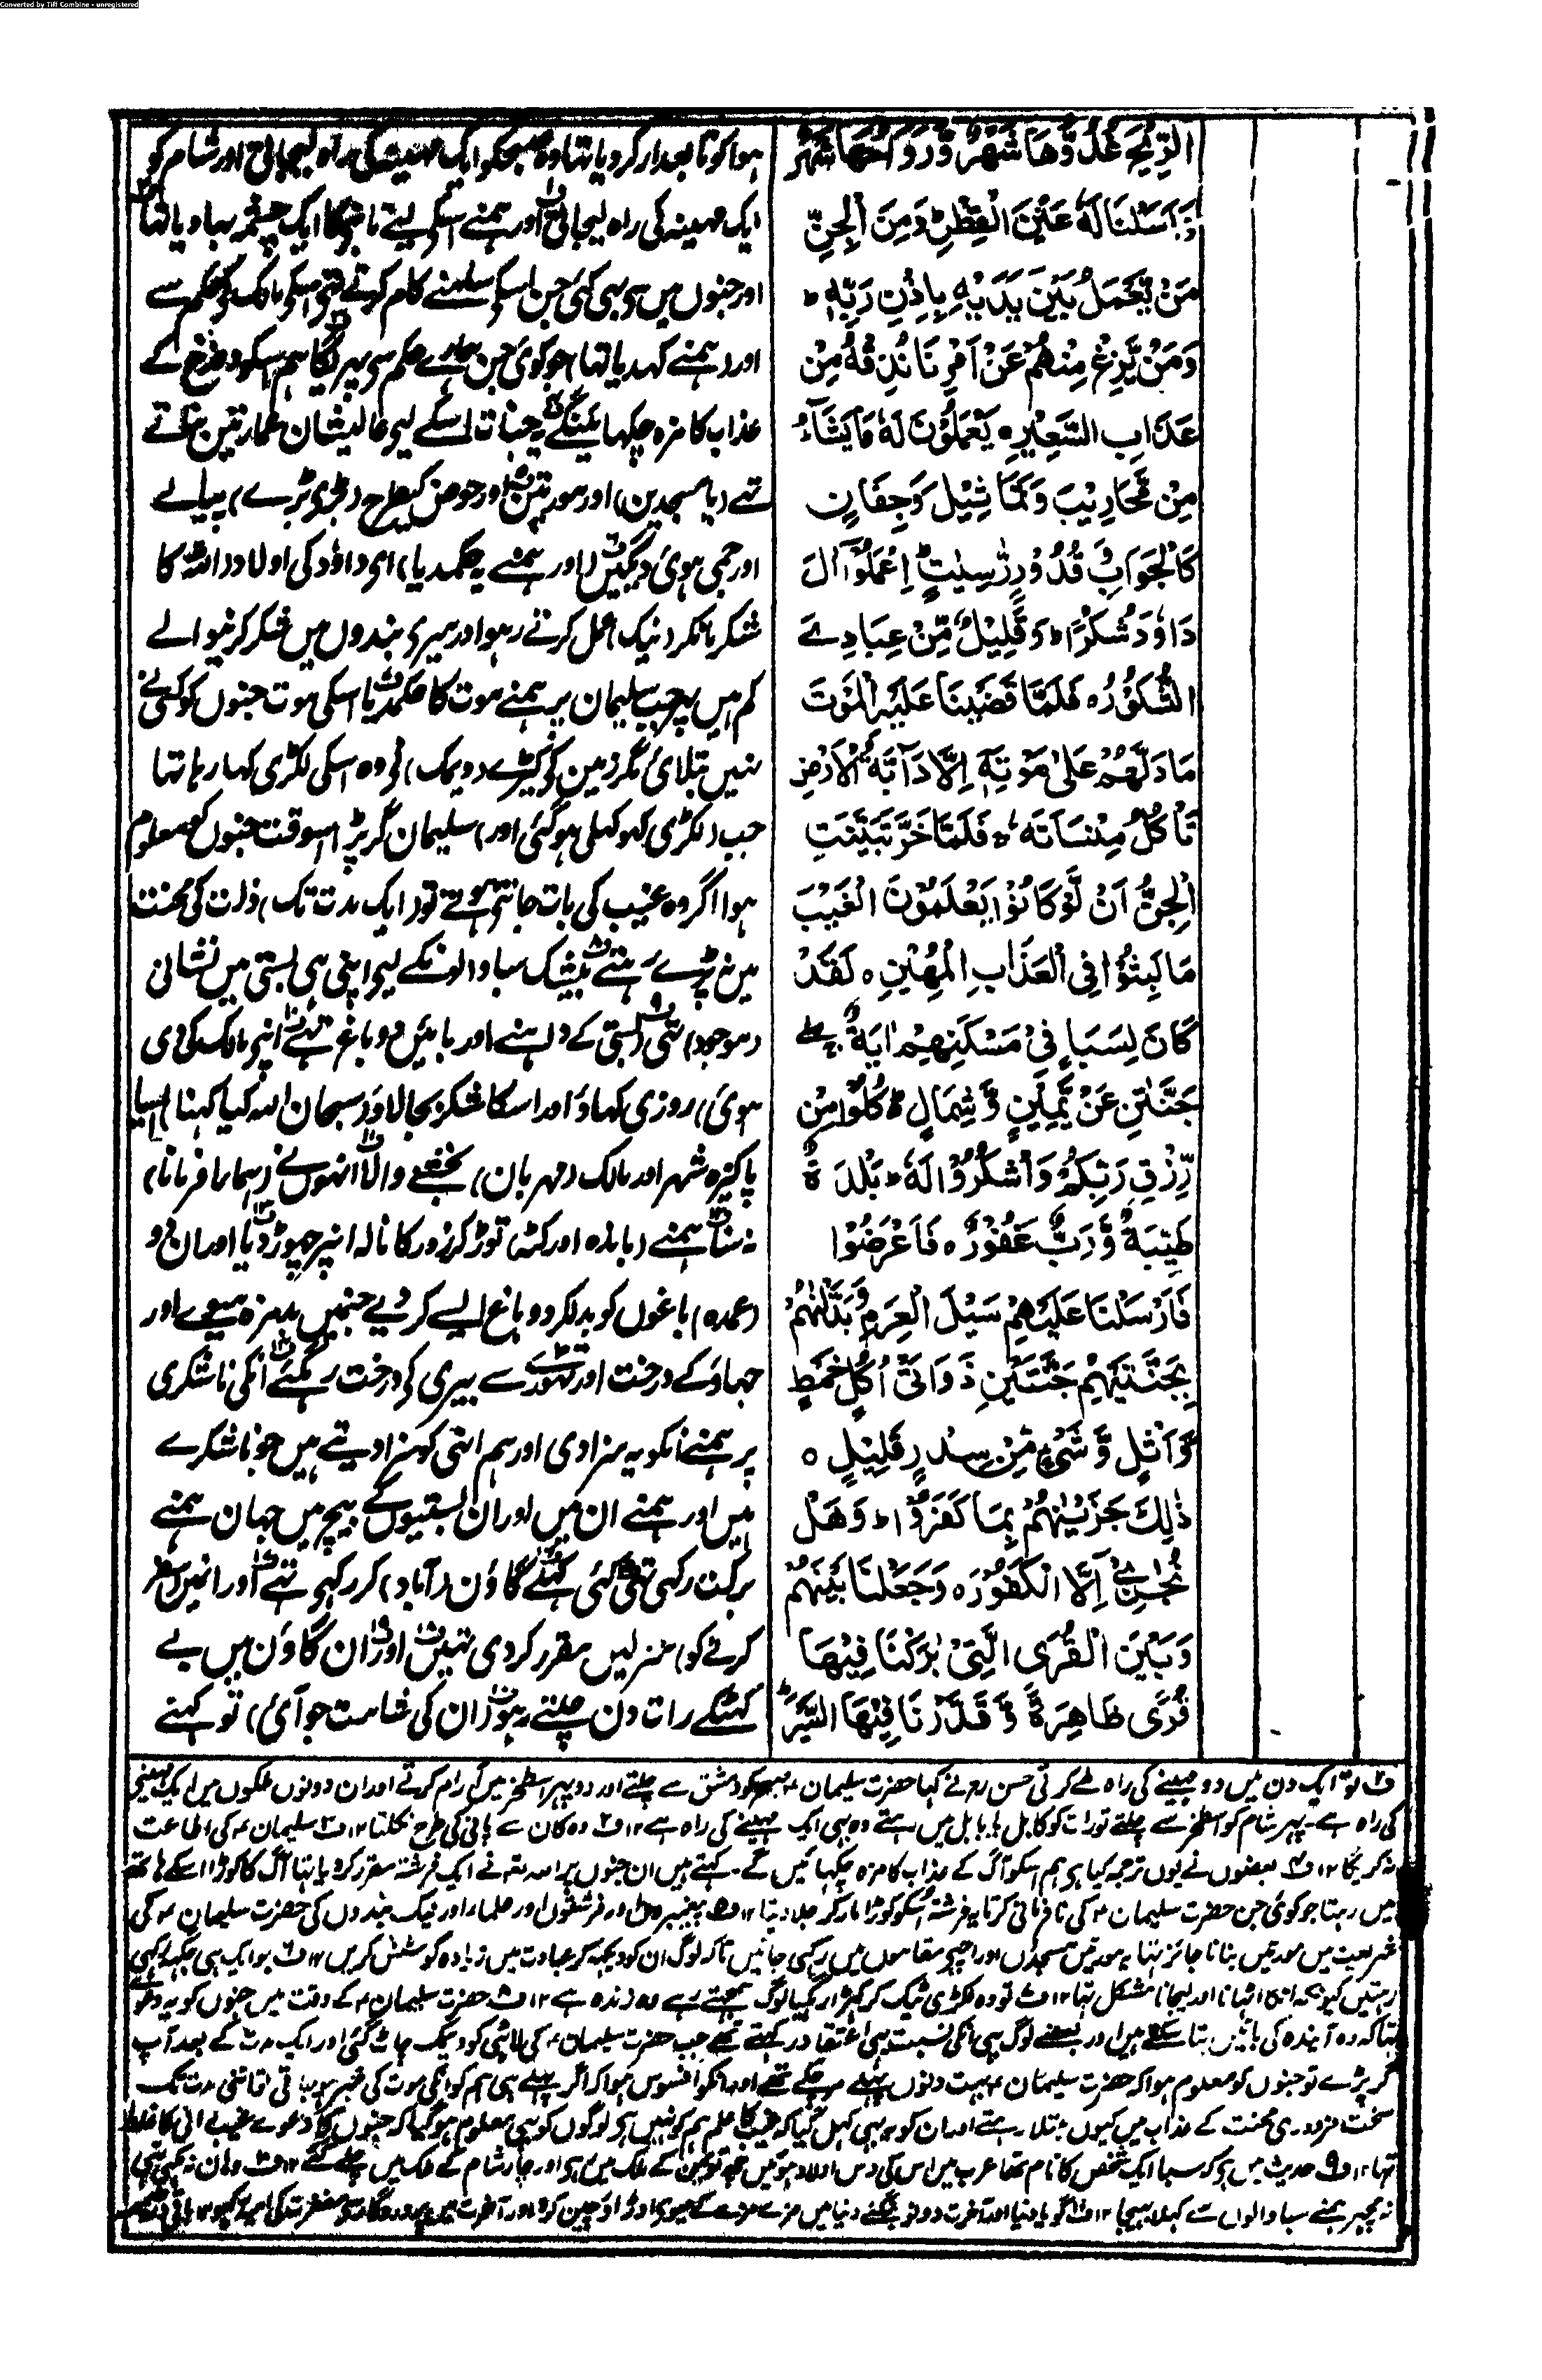 Converted by Tiff Combine - unregistered
الرِّيْحَ غُدُوُّهَا شَهْرٌ وَّرَوَاحُهَا شَهْرٌ
وَاَسَلْنَا لَهٗ عَيْنَ الْقِطْرِ وَمِنَ الْجِنِّ
مَنْ يَّعْمَلُ بَيْنَ يَدَيْهِ بِاِذْنِ رَبِّهٖ ط
وَمَنْ يَّزِغْ مِنْهُمْ عَنْ اَمْرِنَا نُذِقْهُ مِنْ
عَذَابِ السَّعِيْرِ ه يَعْمَلُوْنَ لَهٗ مَا يَشَآءُ
مِنْ مَّحَارِيْبَ وَتَمَاثِيْلَ وَجِفَانٍ
كَالْجَوَابِ وَقُدُوْرٍ رّٰسِيٰتٍ ط اِعْمَلُوْٓا اٰلَ
دَاوٗدَ شُكْرًا ط وَقَلِيْلٌ مِّنْ عِبَادِيَ
الشَّكُوْرُ ه فَلَمَّا قَضَيْنَا عَلَيْهِ الْمَوْتَ
مَا دَلَّهُمْ عَلٰى مَوْتِهٖٓ اِلَّا دَآبَّةُ الْاَرْضِ
تَاْكُلُ مِنْسَاَتَهٗ ج فَلَمَّا خَرَّ تَبَيَّنَتِ
الْجِنُّ اَنْ لَّوْ كَانُوْا يَعْلَمُوْنَ الْغَيْبَ
مَا لَبِثُوْا فِى الْعَذَابِ الْمُهِيْنِ ه لَقَدْ
كَانَ لِسَبَاٍ فِىْ مَسْكَنِهِمْ اٰيَةٌ ج
جَنَّتٰنِ عَنْ يَّمِيْنٍ وَّشِمَالٍ ط كُلُوْا مِنْ
رِّزْقِ رَبِّكُمْ وَاشْكُرُوْا لَهٗ ط بَلْدَةٌ
طَيِّبَةٌ وَّرَبٌّ غَفُوْرٌ ه فَاَعْرَضُوْا
فَاَرْسَلْنَا عَلَيْهِمْ سَيْلَ الْعَرِمِ وَبَدَّلْنٰهُمْ
بِجَنَّتَيْهِمْ جَنَّتَيْنِ ذَوَاتَىْ اُكُلٍ خَمْطٍ
وَّاَثْلٍ وَّشَىْءٍ مِّنْ سِدْرٍ قَلِيْلٍ ه
ذٰلِكَ جَزَيْنٰهُمْ بِمَا كَفَرُوْا ط وَهَلْ
نُجٰزِىْٓ اِلَّا الْكَفُوْرَ ه وَجَعَلْنَا بَيْنَهُمْ
وَبَيْنَ الْقُرَى الَّتِىْ بٰرَكْنَا فِيْهَا
قُرًى ظَاهِرَةً وَّقَدَّرْنَا فِيْهَا السَّيْرَ ط
ہوا کو تابعدار کر دیا تہا وہ صبحکو ایک مہینے کی راہ لیجاتی اور شام کو
ایک مہینہ کی راہ لیجاتی اور ہمنے اسکے لیے تانبیکا ایک چشمہ بہا دیا تہا
اور جنوں میں سے بہی کئی جن اسکے سامنے کام کرتے تہے اسکے مالک کے حکم سے
اور ہمنے کہدیا تہا جو کوئی جن ہمارے حکم سے پہریگا ہم اسکو دوزخ کے
عذاب کا مزہ چکہائینگے یہ جنات اسکے لیے عالیشان عمارتیں بناتے
تہے (یا مسجدیں) اور مورتیں اور حوض کیطرح (بڑے بڑے) پیالے
اور جمی ہوئی دیگیں (اور ہمنے یہ حکمدیا) اے داؤد کی اولاد اللہ کا
شکر مانکر (نیک) عمل کرتے رہو اور میرے بندوں میں شکر کرنیوالے
کم ہیں پہر جب سلیمان پر ہمنے موت کا حکمدیا اسکی موت جنوں کو کسی نے
نہیں بتلائی مگر زمین کے کیڑے (دیمک) نے وہ اسکی لکڑی کہا رہا تہا
جب (لکڑی کہوکہلی ہو گئی اور) سلیمان گر پڑا اسوقت جنوں کو معلوم
ہوا اگر وہ غیب کی بات جانتے ہوتے تو (ایک مدت تک) ذلت کی محنت
میں نہ پڑے رہتے بیشک سبا والونکے لیے اپنی ہی بستی میں نشانی
(موجود) تہی (بستی کے) داہنے اور بائیں دو باغ تہے اپنے مالک کی (دی
ہوئی) روزی کہاؤ اور اسکا شکر بجا لاؤ (سبحان اللہ کیا کہنا) ایسا
پاکیزہ شہر اور مالک (مہربان) بخشنے والا انہوں نے (ہمارا فرمانا)
نہ سنا ہمنے (باندہ اور کٹہ توڑ کر) زور کا نالہ انپر چہوڑ دیا اور ان دو
(عمدہ) باغوں کو بدلکر دو باغ ایسے کر دیے جنمیں بدمزہ میوے اور
جہاؤ کے درخت اور تہوڑے سے بیری کے درخت رہ گئے انکی ناشکری
پر ہمنے انکو یہ سزا دی اور ہم اسی کو سزا دیتے ہیں جو ناشکرے
ہیں اور ہمنے ان میں اور ان بستیوں کے بیچ میں جہان ہمنے
برکت رکہی تہی کئی کہلے گاؤں (آباد) کر رکہے تہے اور انمیں سفر
کرنے کو) منزلیں مقرر کر دی تہیں اور ان گاؤں میں بے
کہٹکے رات دن چلتے رہو (ان کی شامت جو آئی) تو کہنے
ف تو ایک دن میں دو مہینے کی راہ طے کرتی حسن رح نے کہا حضرت سلیمان ع صبحکو دمشق سے چلتے اور دوپہر اسطخر میں آرام کرتے اور ان دونوں ملکوں میں ایک مہینے
کی راہ ہے۔ پہر شام کو اسطخر سے چلتے تو رات کو کابل یا بابل میں رہتے وہ بہی ایک مہینے کی راہ ہے ۱۲ ف۲ وہ کان سے پانی کی طرح نکلتا ۱۲ ف۳ سلیمان ع کی اطاعت
نہ کریگا ۱۲ ف۴ بعضوں نے یوں ترجمہ کیا ہے ہم اسکو آگ کے عذاب کا مزہ چکہائیں گے۔ کہتے ہیں ان جنوں پر اللہ تعہ نے ایک فرشتہ مقرر کر دیا تہا آگ کا کوڑا اسکے ہاتہہ
میں رہتا جو کوئی جن حضرت سلیمان ع کی نافرمانی کرتا یہ فرشتہ اسکو کوڑا مار کر جلا دیتا ۱۲ ف۵ پیغمبروں اور فرشتوں اور علماء اور نیک بندوں کی حضرت سلیمان ع کی
شریعت میں مورتیں بنانا جائز تہا یہ مورتیں مسجدوں اور اچہے مقاموں میں رکہی جاتیں تاکہ لوگ ان کو دیکہہ کر عبادت میں زیادہ کوشش کریں ۱۲ ف۶ جو ایک ہی جگہہ رکہی
رہتیں کیونکہ انکا اٹہانا اور لیجانا مشکل تہا ۱۲ ف۷ تو وہ لکڑی ٹیک کر کہڑا رہ گیا لوگ سمجہتے رہے وہ زندہ ہے ۱۲ ف۸ حضرت سلیمان ع کے وقت میں جنوں کو یہ دعوے
تہا کہ وہ آیندہ کی باتیں بتا سکتے ہیں اور بعضے لوگ بہی انکی نسبت یہی اعتقاد رکہتے تہے جب حضرت سلیمان ع کی لاٹہی کو دیمک چاٹ گئی اور ایک مدت کے بعد آپ
گر پڑے تو جنوں کو معلوم ہوا کہ حضرت سلیمان ع بہت دنوں پہلے مر چکے تہے اور انکو افسوس ہوا کہ اگر پہلے ہی ہم کو انکی موت کی خبر ہو جاتی تو اتنی مدت تک
سخت مزدوری محنت کے عذاب میں کیوں مبتلا رہتے اور ان کو یہ بہی کہل گیا کہ غیب کا علم ہم کو نہیں ہے لوگوں کو بہی معلوم ہو گیا کہ جنوں کا دعوے غیب دانی کا غلط
تہا ۱۲ ف۹ حدیث میں ہے کہ سبا ایک شخص کا نام تہا عرب میں اس کی دس اولاد ہوئیں چہہ تو یمن کے ملک میں رہے اور چار شام کے ملک میں چلے گئے ۱۲
نہ مچہر ہمنے سبا والوں سے کہلا بہیجا ۱۲ ف گویا دنیا اور آخرت دونو بنگئے دنیا میں مزے مزے کے میوے اوڑاؤ چین کرو اور آخرت میں پروردگار سے مغفرت کی امید رکہو ۱۲